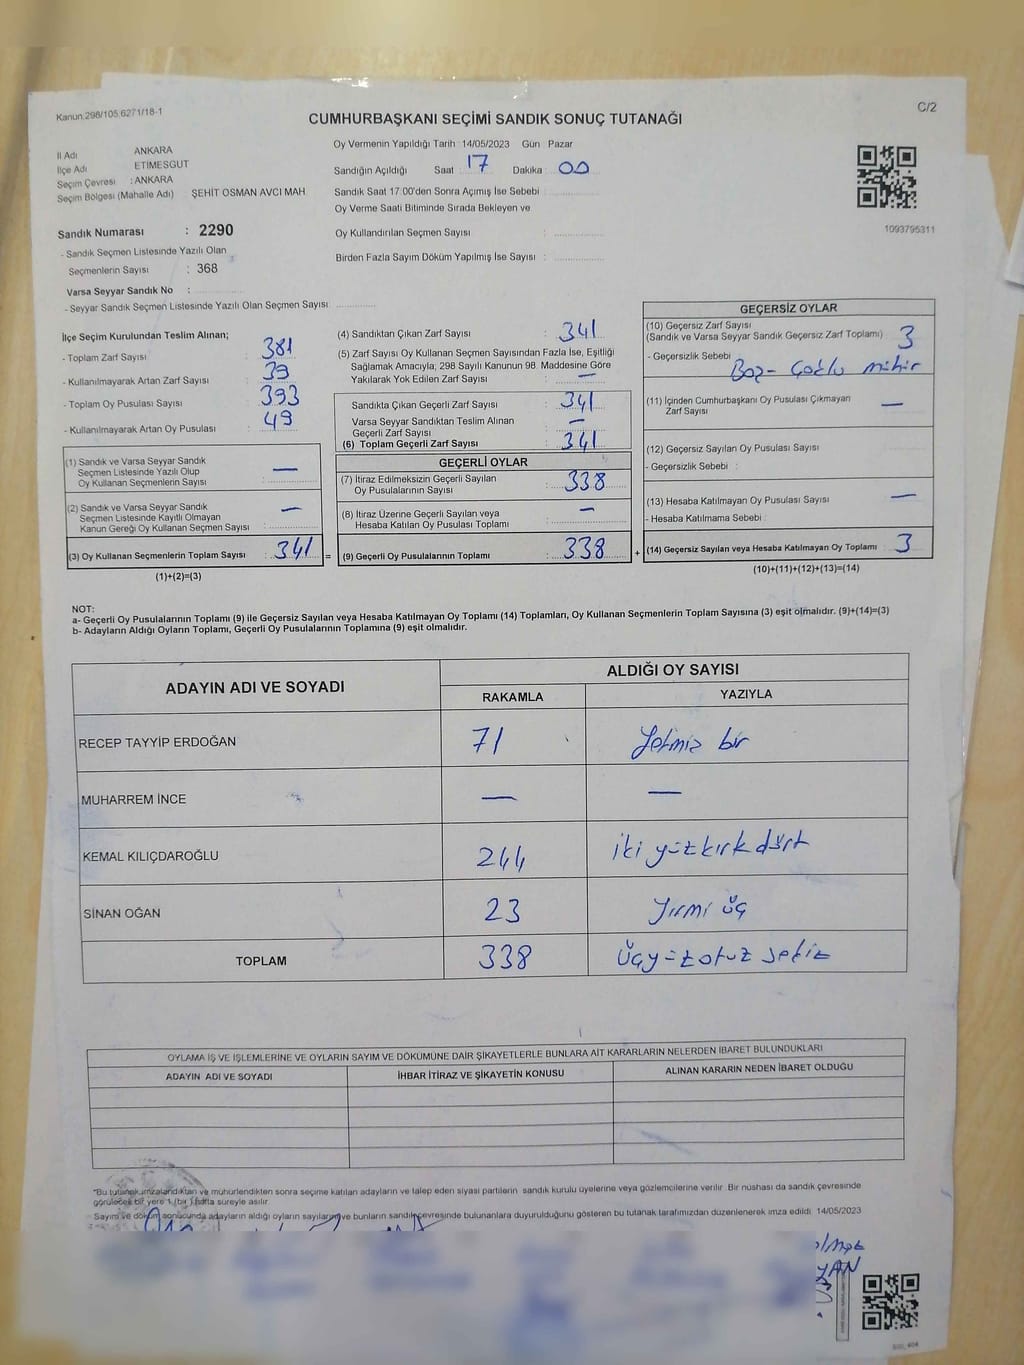 Kanun.298/105.6271/18-1
C/2
CUMHURBAŞKANI SEÇİMİ SANDIK SONUÇ TUTANAĞI
İl Adı ANKARA
İlçe Adı ETİMESGUT
Seçim Çevresi : ANKARA
Seçim Bölgesi (Mahalle Adı) ŞEHİT OSMAN AVCI MAH
Sandık Numarası : 2290
- Sandık Seçmen Listesinde Yazılı Olan
Seçmenlerin Sayısı : 368
Varsa Seyyar Sandık No :
- Seyyar Sandık Seçmen Listesinde Yazılı Olan Seçmen Sayısı
Oy Vermenin Yapıldığı Tarih : 14/05/2023 Gün Pazar
Sandığın Açıldığı Saat 17 Dakika 00
Sandık Saat 17:00'den Sonra Açımış İse Sebebi
Oy Verme Saati Bitiminde Sırada Bekleyen ve
Oy Kullandırılan Seçmen Sayısı :
Birden Fazla Sayım Döküm Yapılmış İse Sayısı :
1093795311
İlçe Seçim Kurulundan Teslim Alınan;
- Toplam Zarf Sayısı : 381
- Kullanılmayarak Artan Zarf Sayısı : 39
- Toplam Oy Pusulası Sayısı : 393
- Kullanılmayarak Artan Oy Pusulası : 49
(1) Sandık ve Varsa Seyyar Sandık
Seçmen Listesinde Yazılı Olup
Oy Kullanan Seçmenlerin Sayısı : —
(2) Sandık ve Varsa Seyyar Sandık
Seçmen Listesinde Kayıtlı Olmayan
Kanun Gereği Oy Kullanan Seçmen Sayısı : —
(3) Oy Kullanan Seçmenlerin Toplam Sayısı : 341 =
(1)+(2)=(3)
(4) Sandıktan Çıkan Zarf Sayısı : 341
(5) Zarf Sayısı Oy Kullanan Seçmen Sayısından Fazla İse, Eşitliği
Sağlamak Amacıyla, 298 Sayılı Kanunun 98 Maddesine Göre
Yakılarak Yok Edilen Zarf Sayısı : —
Sandıkta Çıkan Geçerli Zarf Sayısı : 341
Varsa Seyyar Sandıktan Teslim Alınan
Geçerli Zarf Sayısı : —
(6) Toplam Geçerli Zarf Sayısı : 341
GEÇERLİ OYLAR
(7) İtiraz Edilmeksizin Geçerli Sayılan
Oy Pusulalarının Sayısı : 338
(8) İtiraz Üzerine Geçerli Sayılan veya
Hesaba Katılan Oy Pusulası Toplamı : —
(9) Geçerli Oy Pusulalarının Toplamı : 338 +
GEÇERSİZ OYLAR
(10) Geçersiz Zarf Sayısı
(Sandık ve Varsa Seyyar Sandık Geçersiz Zarf Toplamı) : 3
- Geçersizlik Sebebi Boş - Çoklu mühür
(11) İçinden Cumhurbaşkanı Oy Pusulası Çıkmayan
Zarf Sayısı : —
(12) Geçersiz Sayılan Oy Pusulası Sayısı :
- Geçersizlik Sebebi :
(13) Hesaba Katılmayan Oy Pusulası Sayısı : —
- Hesaba Katılmama Sebebi :
(14) Geçersiz Sayılan veya Hesaba Katılmayan Oy Toplamı : 3
(10)+(11)+(12)+(13)=(14)
NOT:
a- Geçerli Oy Pusulalarının Toplamı (9) ile Geçersiz Sayılan veya Hesaba Katılmayan Oy Toplamı (14) Toplamları, Oy Kullanan Seçmenlerin Toplam Sayısına (3) eşit olmalıdır. (9)+(14)=(3)
b- Adayların Aldığı Oyların Toplamı, Geçerli Oy Pusulalarının Toplamına (9) eşit olmalıdır.
ADAYIN ADI VE SOYADI
ALDIĞI OY SAYISI
RAKAMLA YAZIYLA
RECEP TAYYİP ERDOĞAN 71 Yetmiş bir
MUHARREM İNCE — —
KEMAL KILIÇDAROĞLU 244 iki yüz kırk dört
SİNAN OĞAN 23 Yirmi üç
TOPLAM 338 Üçyüz otuz sekiz
OYLAMA İŞ VE İŞLEMLERİNE VE OYLARIN SAYIM VE DÖKÜMÜNE DAİR ŞİKAYETLERLE BUNLARA AİT KARARLARIN NELERDEN İBARET BULUNDUKLARI
ADAYIN ADI VE SOYADI İHBAR İTİRAZ VE ŞİKAYETİN KONUSU ALINAN KARARIN NEDEN İBARET OLDUĞU
"Bu tutanak imzalandıktan ve mühürlendikten sonra seçime katılan adayların ve talep eden siyasi partilerin sandık kurulu üyelerine veya gözlemcilerine verilir. Bir nüshası da sandık çevresinde
görülecek bir yere 1 (bir) hafta süreyle asılır.
Sayım ve döküm sonucunda adayların aldığı oyların sayıları ve bunların sandık çevresinde bulunanlara duyurulduğunu gösteren bu tutanak tarafımızdan düzenlenerek imza edildi. 14/05/2023